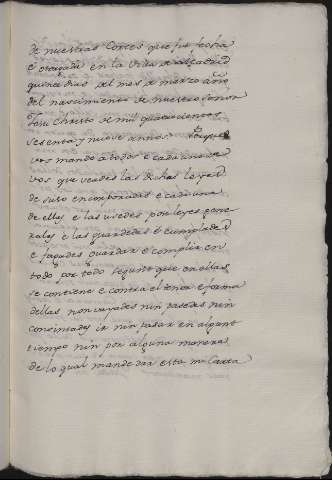 de nuestras Cortes que fue fecha
e otorgada en la Villa de alcala
quince dias del mes de marzo año
del nascimiento de nuestro señor
Jesu Christo de mil quatrocientos
sesenta y nueve annos. Porque
vos mando a todos e cada uno de
vos que veades las dichas leyes
de suso encorporadas e cada una
de ellas e las usedes por leyes gene
rales e las guardedes e cumplades
e fagades guardar e complir en
todo por todo segunt que en ellas
se contiene e contra el tenor e forma
dellas non vayades nin pasedes nin
consintades ir nin pasar en algunt
tiempo nin por alguna manera
de lo qual mande dar esta mi Carta